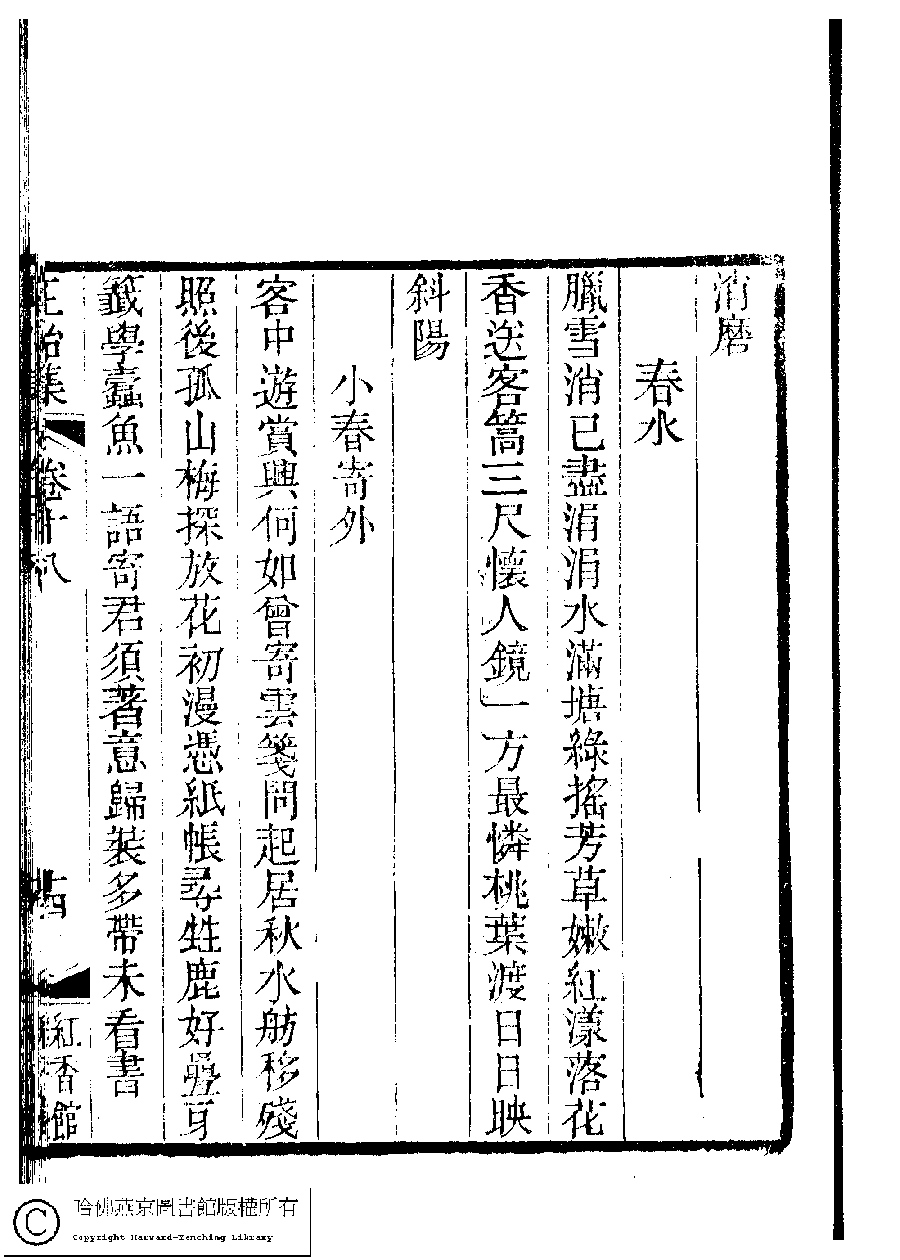 消磨
春水
臘雪消已盡涓涓水滿塘綠搖芳草嫩紅漾落花
香送客篙三尺懷人鏡一方最憐桃葉渡日日映
斜陽
小春寄外
客中遊賞興何如曾寄雲箋問起居秋水舫移殘
照後孤山梅探放花初漫憑紙帳尋甡鹿好疊牙
籤學蠹魚一語寄君須著意歸裝多帶未看書
正始集
卷十八
紅香館
哈佛燕京圖書館版權所有
Copyright Harvard-Yenching Library